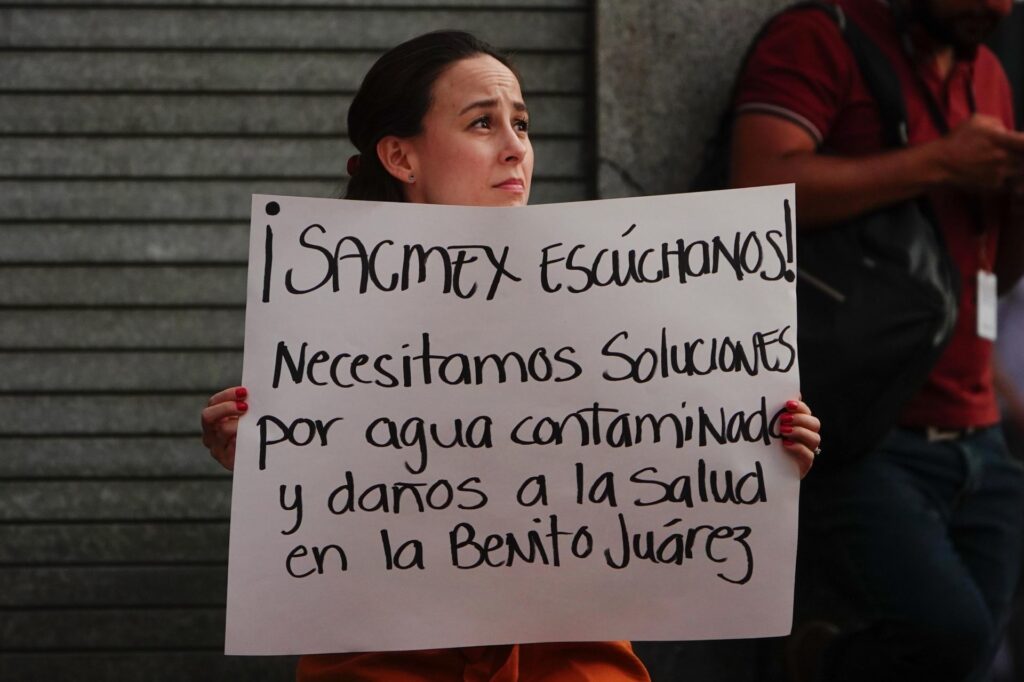 ¡SACMEX ESCÚCHANOS!
Necesitamos Soluciones
por agua contaminada
y daños a la Salud
en la Benito Juárez